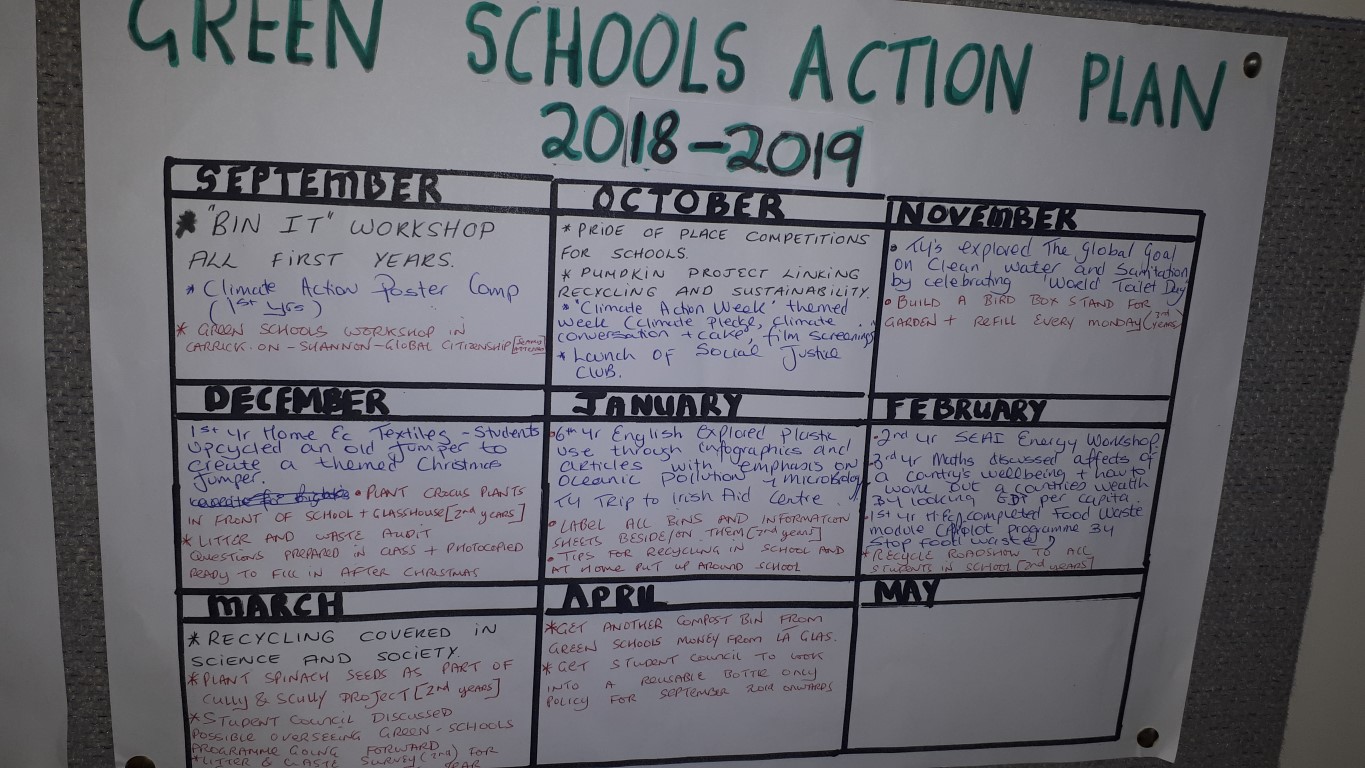 GREEN SCHOOLS ACTION PLAN
2018-2019
SEPTEMBER
* "BIN IT" WORKSHOP
ALL FIRST YEARS.
* Climate Action Poster Comp
(1st yrs)
* GREEN SCHOOLS WORKSHOP IN
CARRICK-ON-SHANNON-GLOBAL CITIZENSHIP
OCTOBER
* PRIDE OF PLACE COMPETITIONS
FOR SCHOOLS.
* PUMPKIN PROJECT LINKING
RECYCLING AND SUSTAINABILITY.
* "Climate Action Week" themed
week (climate pledge, climate
conversation + cake, film screening
* Launch OF Social Justice
CLUB.
NOVEMBER
• TY's explored The global Goal
on Clean water and Sanitation
by celebrating 'World Toilet Day'
• BUILD A BIRD BOX STAND FOR
GARDEN + REFILL EVERY MONDAY (2nd years)
DECEMBER
1st yr Home Ec Textiles - Students
Upcycled an old Jumper to
create a themed Christmas
Jumper.
• PLANT CROCUS PLANTS
IN FRONT OF SCHOOL + GLASSHOUSE [2nd years]
* LITTER AND WASTE AUDIT
QUESTIONS PREPARED IN CLASS + PHOTOCOPIED
READY TO FILL IN AFTER CHRISTMAS
JANUARY
• 6th yr English Explored Plastic
use through infographics and
articles with emphasis on
Oceanic Pollution + microbiology
TY Trip to Irish Aid Centre.
• LABEL ALL BINS AND INFORMATION
SHEETS BESIDE/ON THEM [2nd years]
• TIPS FOR RECYCLING IN SCHOOL AND
AT HOME PUT UP AROUND SCHOOL
FEBRUARY
• 2nd yr SEAI Energy Workshop.
• 3rd yr Maths discussed affects of
a country's wellbeing + how to
work out a countries wealth
By looking GDT per capita.
• 1st yr completed Food Waste
module (A pilot Programme By
Stop food waste)
* RECYCLE ROADSHOW TO ALL
STUDENTS IN SCHOOL [2nd years]
MARCH
* RECYCLING COVERED IN
SCIENCE AND SOCIETY.
* PLANT SPINACH SEEDS AS PART OF
CULLY & SCULLY PROJECT [2nd years]
* STUDENT COUNCIL DISCUSSED
POSSIBLE OVERSEEING GREEN-SCHOOLS
PROGRAMME GOING FORWARD
* LITTER & WASTE SURVEY (2nd) FOR
YEAR
APRIL
* GET ANOTHER COMPOST BIN FROM
GREEN SCHOOLS MONEY FROM LA GLAS.
* GET STUDENT COUNCIL TO LOOK
INTO A REUSABLE BOTTLE ONLY
POLICY FOR SEPTEMBER 2019 ONWARDS
MAY